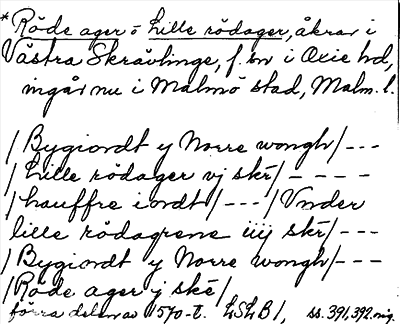 *Röde ager o Lille rödager, åkrar i
Västra Skrävlinge, f. sn i Oxie hd,
ingår nu i Malmö stad, Malm. l.
/Bygiordt y Norre wongh/---
/Lille rödager vj ske/----
/hauffre iordt/---/Vnder
lille rödagrene iiij ske/---
/Bygiordt y Norre wongh/---
/Röde ager j ske/
förra delen av 1570-t. LSLB 1, ss. 391, 392.